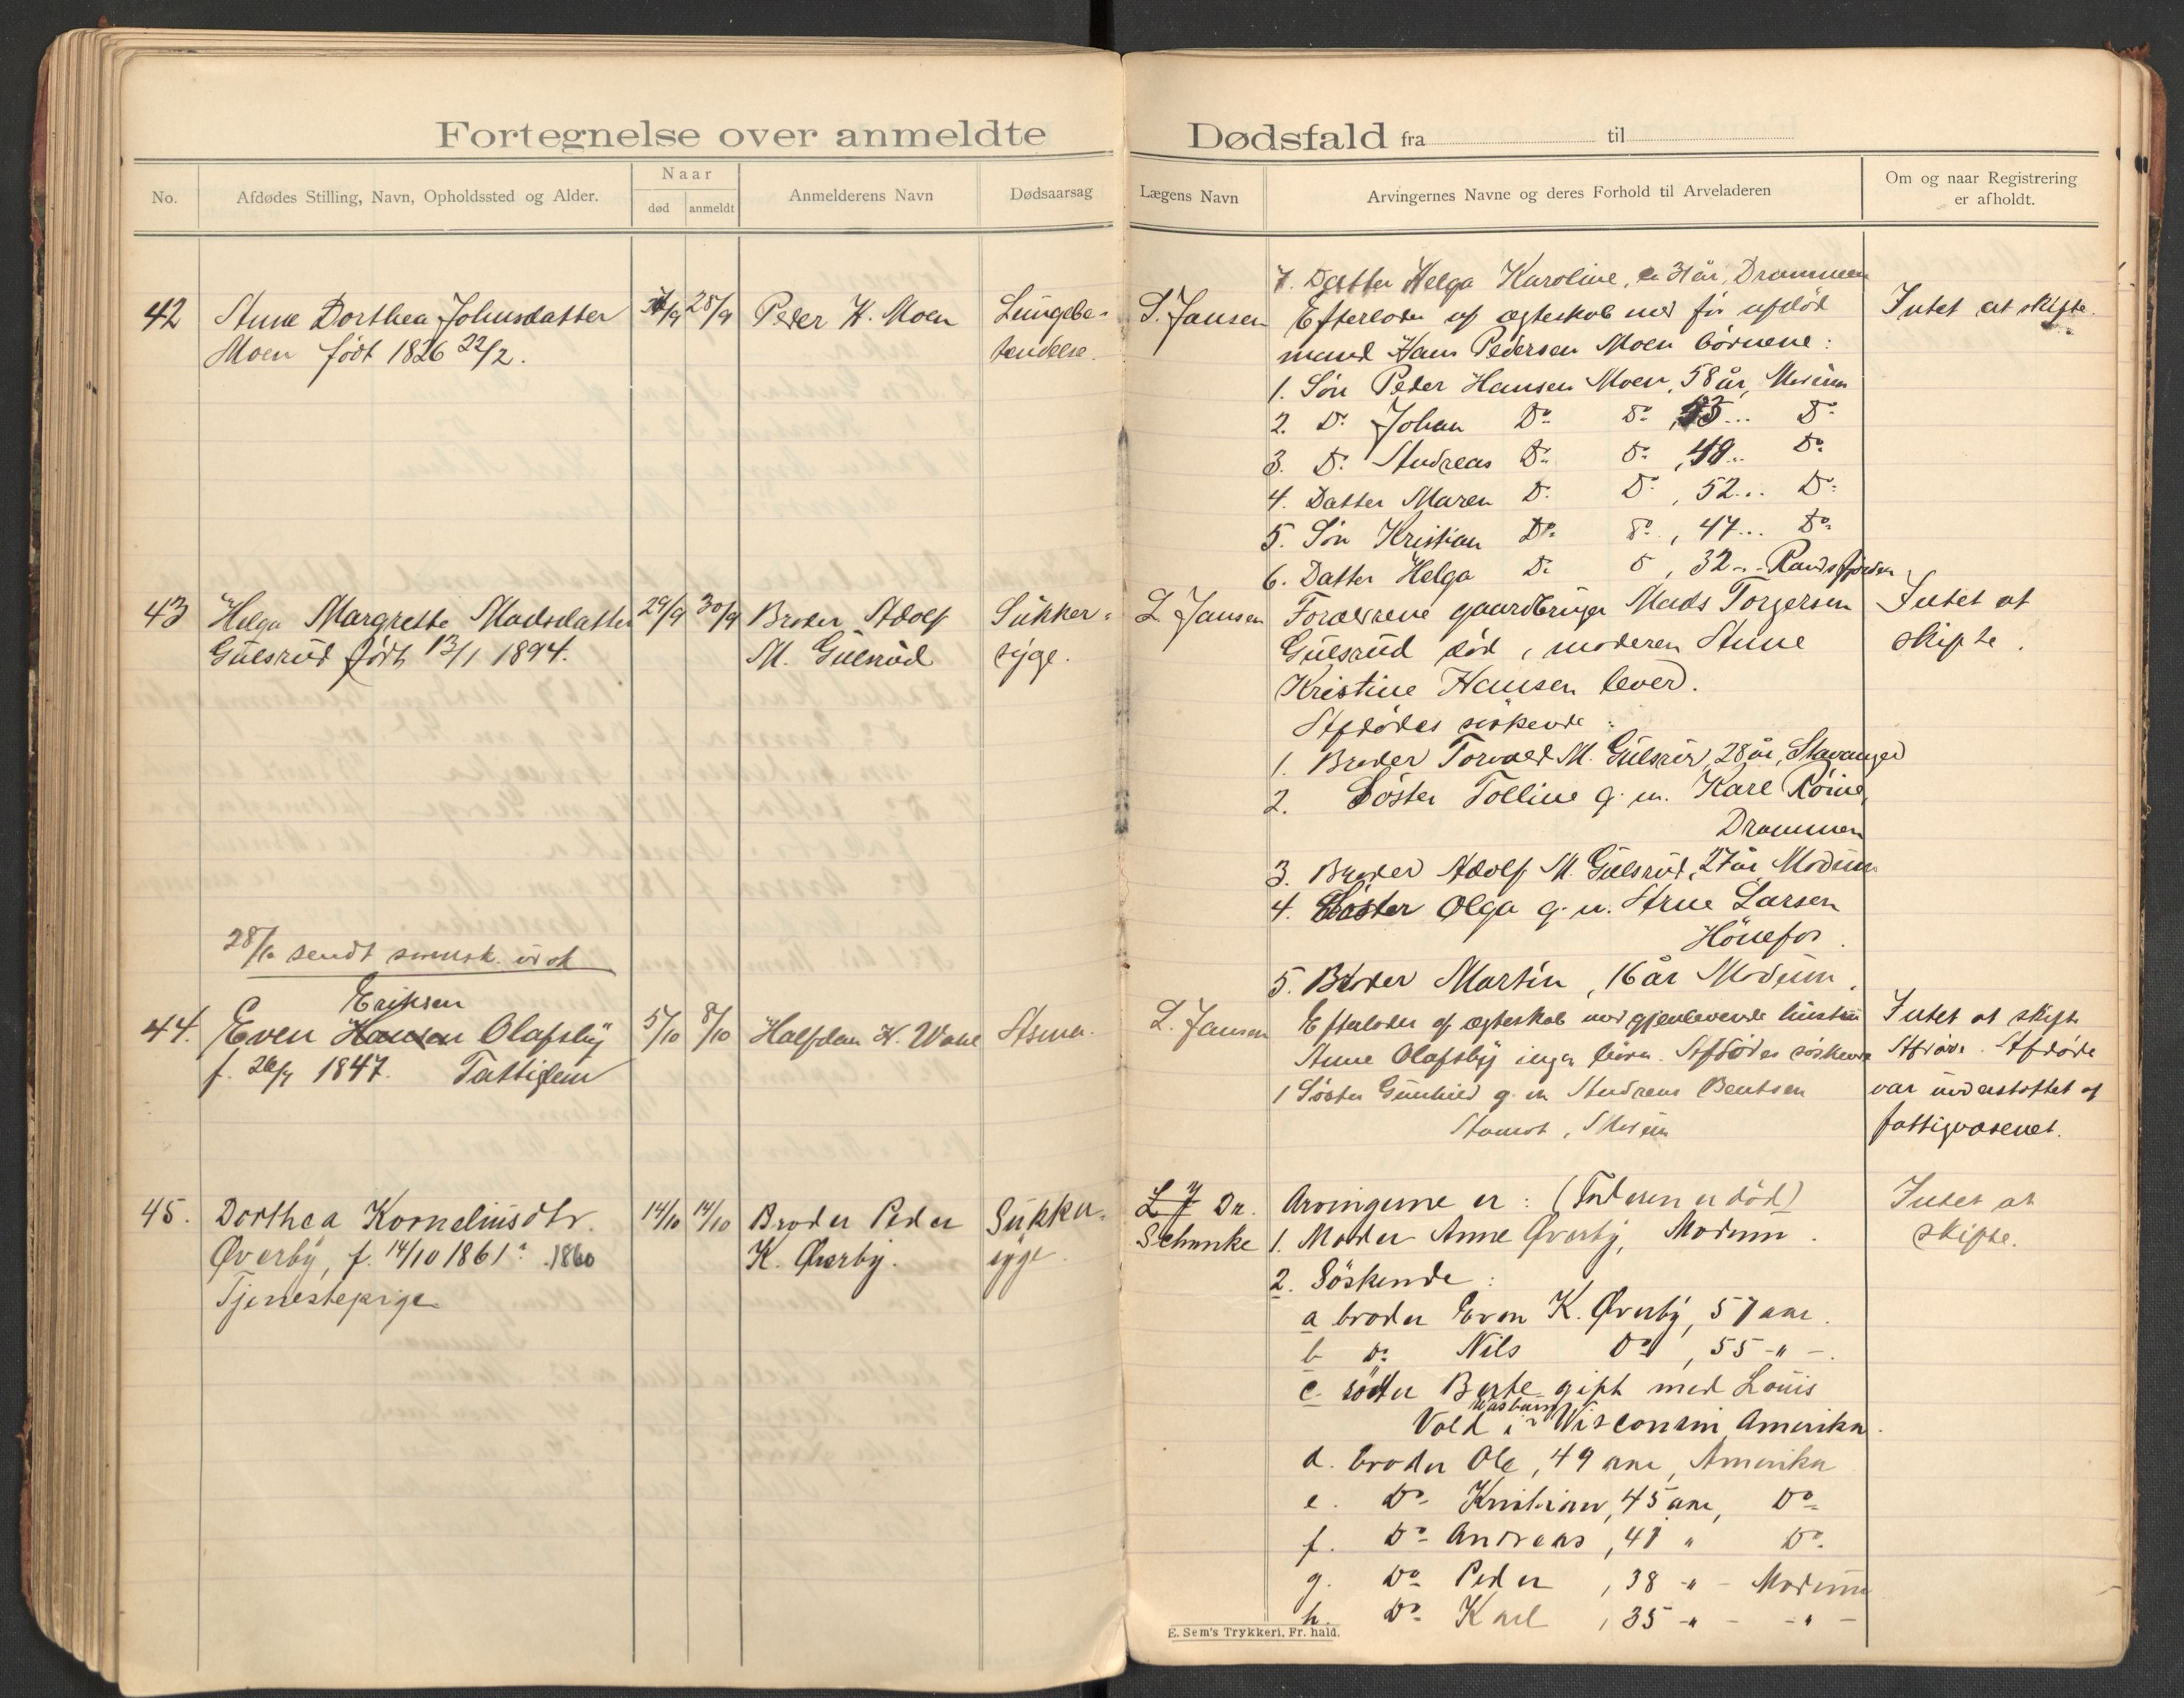 Fortegnelse over anmeldte Dødsfald fra til
No.
Afdødes Stilling, Navn, Opholdssted og Alder.
Naar
død
anmeldt
Anmelderens Navn
Dødsaarsag
Lægens Navn
Arvingernes Navne og deres Forhold til Arveladeren
Om og naar Registrering
er afholdt.
7. Datter Helga Karoline, 31 år, Drammen
42 Anne Dorthea Johnsdatter
Moen født 1826 22/2.
28/9
Peder H. Moen
Lungebe-
tendelse.
L. Jansen
Efterlader af ægteskab med før afdød
mand Hans Pedersen Moen børnene:
1. Søn Peder Hansen Moen, 58 år, Modum
2. Do Johan Do Do, ... Do
3. Do Andreas Do Do, 49... Do
4. Datter Maren Do Do, 52... Do
5. Søn Kristian Do Do, 47... Do
6. Datter Helga Do Do, 32... Randsfjorden
Intet at skifte.
43 Helga Margrethe Madsdatter
Gulsrud født 13/1 1894.
29/9 30/9
Broder Adolf
M. Gulsrud
Sukker-
syge.
L. Jansen
Forældrene gaardbruger Mads Torgersen
Gulsrud død, moderen Anne
Kristine Hansen lever.
Afdødes søskende:
1. Broder Torvald M. Gulsrud, 28 år, Stavanger
2. Søster Tolline g. m. Karl
Drammen
3. Broder Adolf M. Gulsrud, 27 år, Modum
4. Søster Olga g. m. Arne Larsen
Hönefos.
5. Broder Martin, 16 år Modum.
Intet at
skifte.
28/10 sendt
Eriksen
44. Even Hansen Olafsby
f. 26/7 1847. Fattiglem
5/10 8/10
Halfdan K.
Astma.
L. Jansen
Efterlader af ægteskab med gjenlevende hustru
Anne Olafsby ingen børn. Afdødes søskende
1 Søster Gunhild g. m. Andreas Bentsen
Åamot, Modum
Intet at skifte
Afdøde. Afdøde
var understøttet af
fattigvæsenet.
45. Dorthea Korneliusdtr.
Øverby, f. 14/10 1861? 1860
Tjenestepige
14/10 14/10
Broder Peder
K. Øverby.
Sukker-
syge.
L J Dr.
Schanke
Arvingerne er: (Faderen er død)
1. Moder Anne Øverby, Modum.
2. Söskende:
a broder Even K. Øverby, 57 aar.
b Do Nils Do, 55 -"-.
c. söster Berte gift med Louis
Vold i Wisconsin, Amerika.
d. broder Ole, 49 aar, Amerika
e. Do Kristian, 45 aar, Do
f. Do Andreas, 41 " Do
g. Do Peder, 38 -"- Modum
h. Do Karl, 35 -"- -"-
Intet at
skifte.
E. Sem's Trykkeri, Fr. hald.